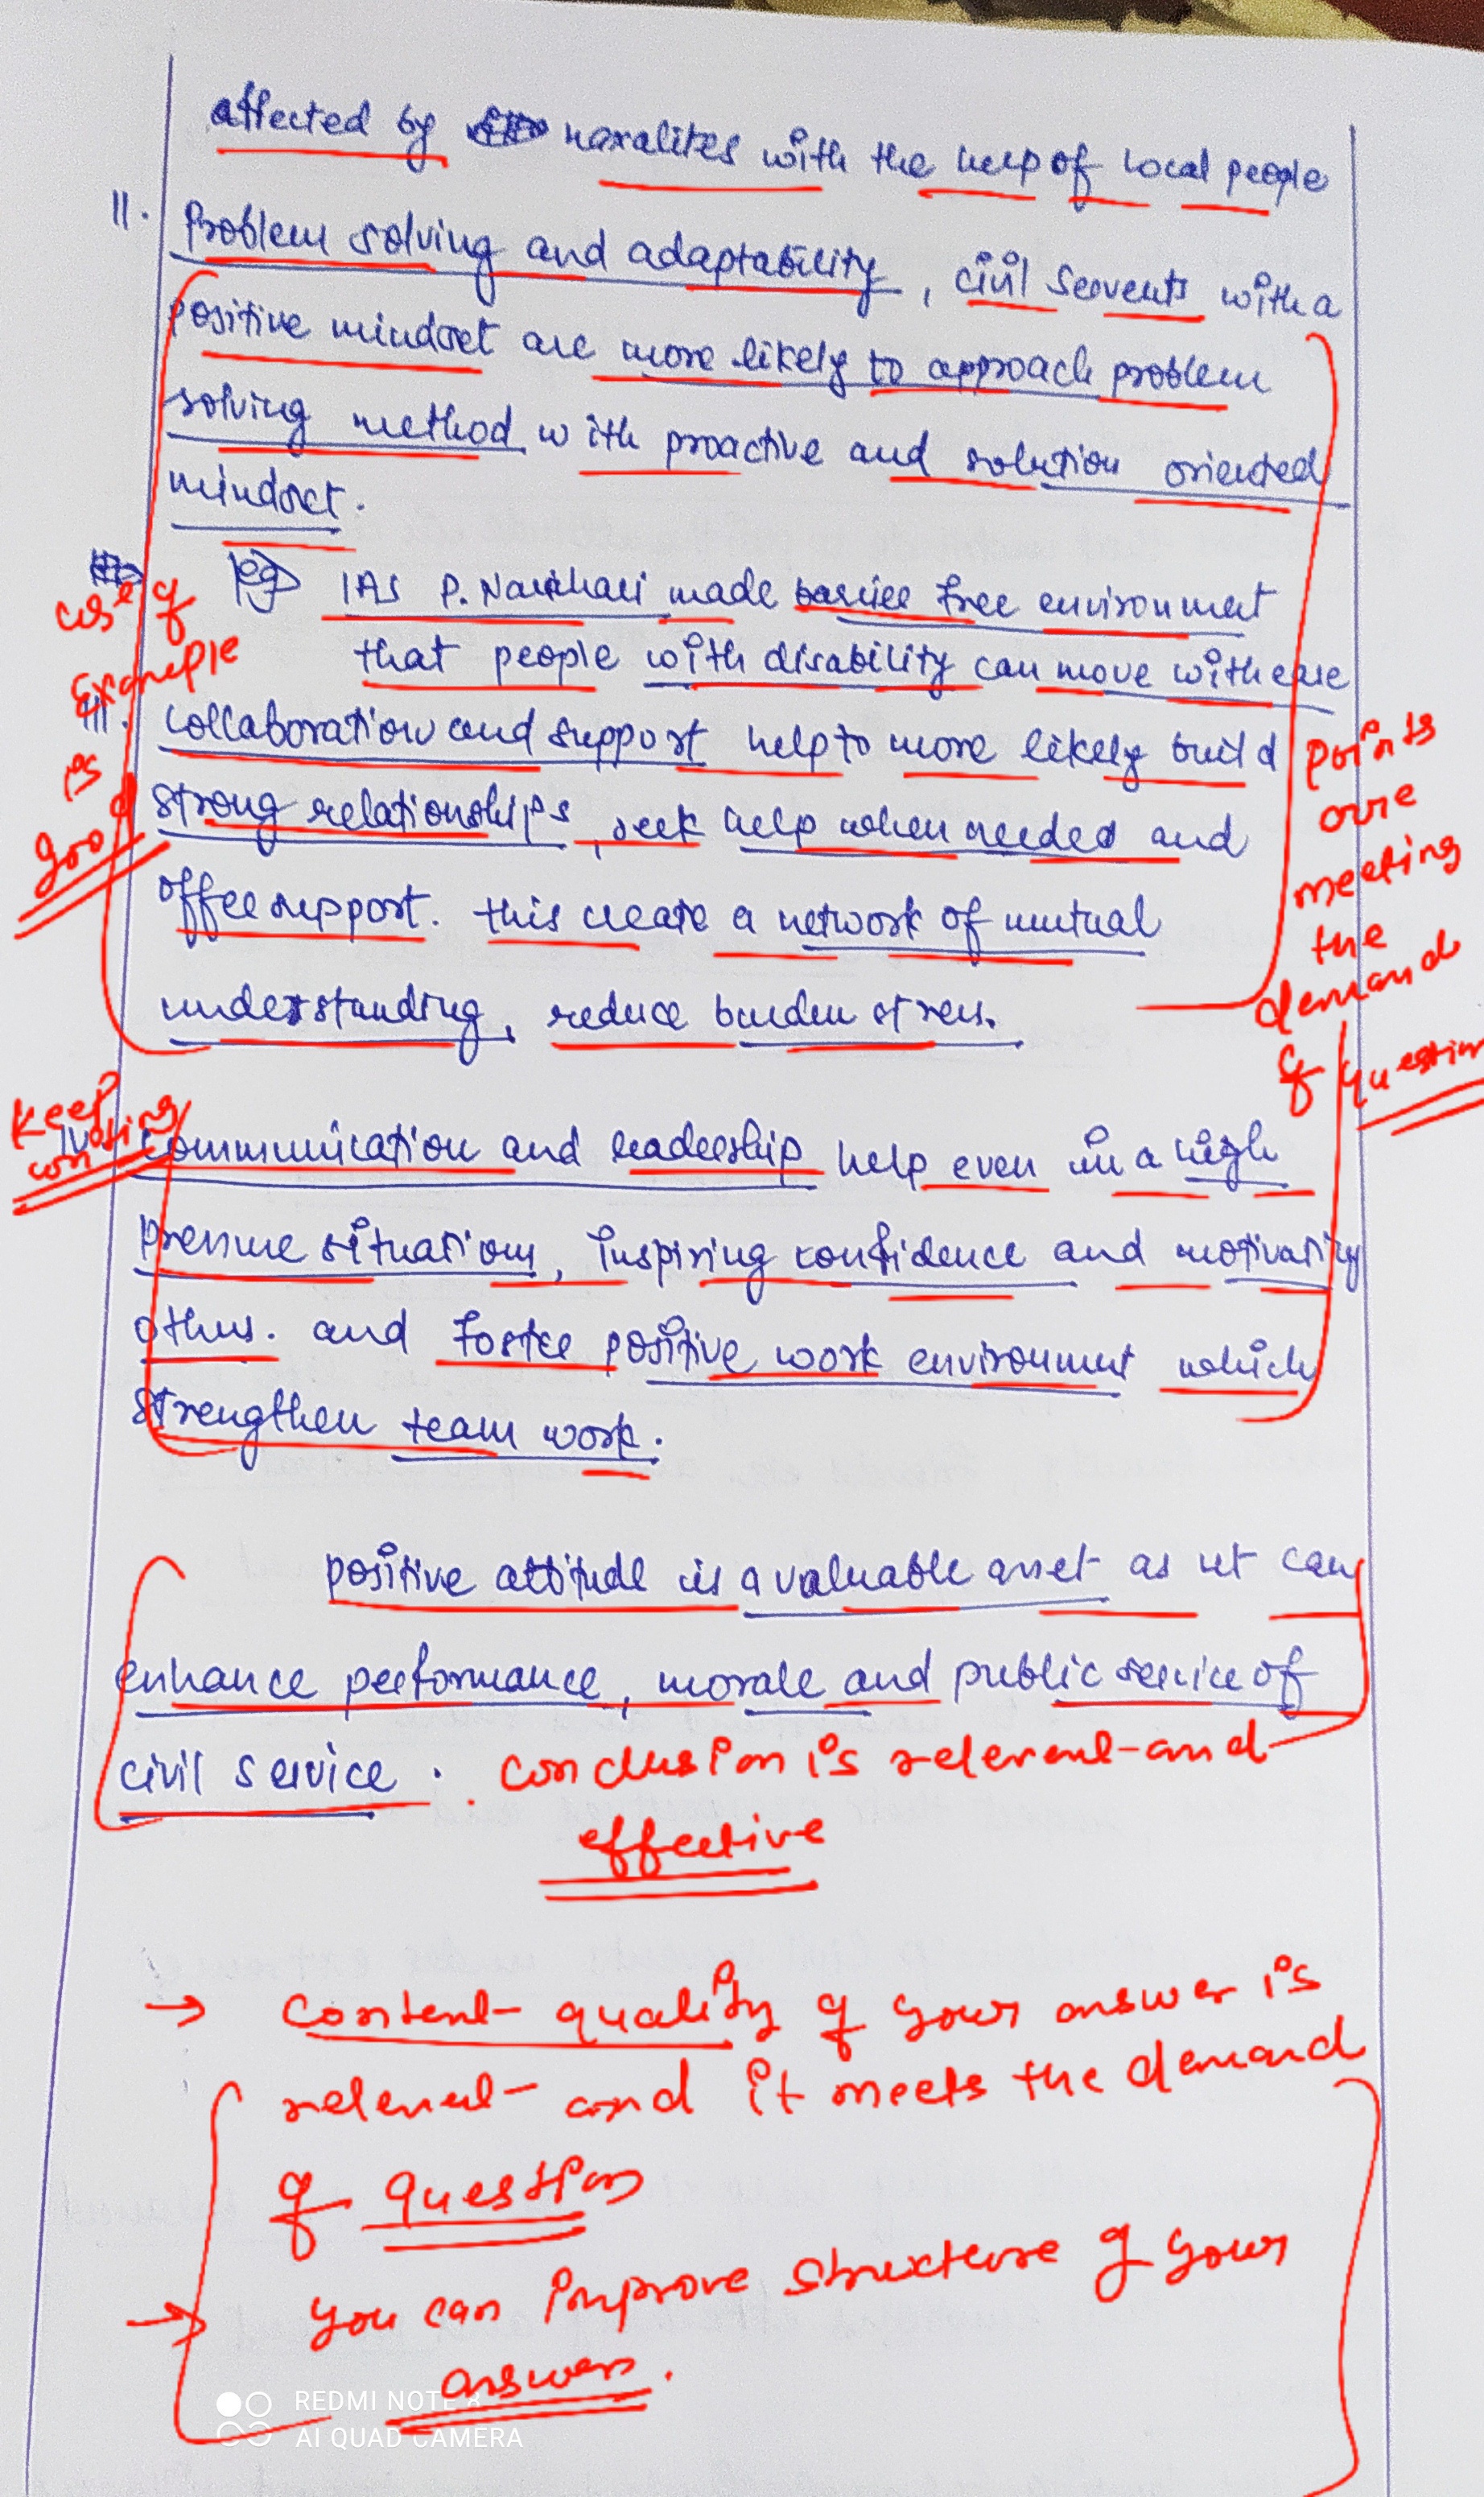 affected by naxalites with the help of local people
II. Problem solving and adaptability, civil servents with a
positive mindset are more likely to approach problem
solving method with proactive and solution oriented
mindset.
eg IAS P. Narahari made barrier free environment
that people with disability can move with ease
use of
Example
is
good
III. collaboration and support help to more likely build
strong relationships, seek help when needed and
offer support. this create a network of mutual
understanding, reduce burden stress.
points
are
meeting
the
demand
of question
Keep
writing
IV. communication and leadership help even in a high
pressure situations, inspiring confidence and motivating
others. and foster positive work environment which
strengthen team work.
positive attitude is a valuable asset as it can
enhance performance, morale and public service of
civil service.
conclusion is relevent and
effective
→ content quality of your answer is
relevent and it meets the demand
of question
→ you can improve structure of your
answer.
REDMI NOTE 8
AI QUAD CAMERA